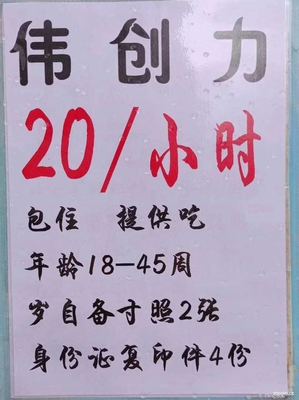 伟创力
20/小时
包住 提供吃
年龄18-45周
岁自备寸照2张
身份证复印件4份